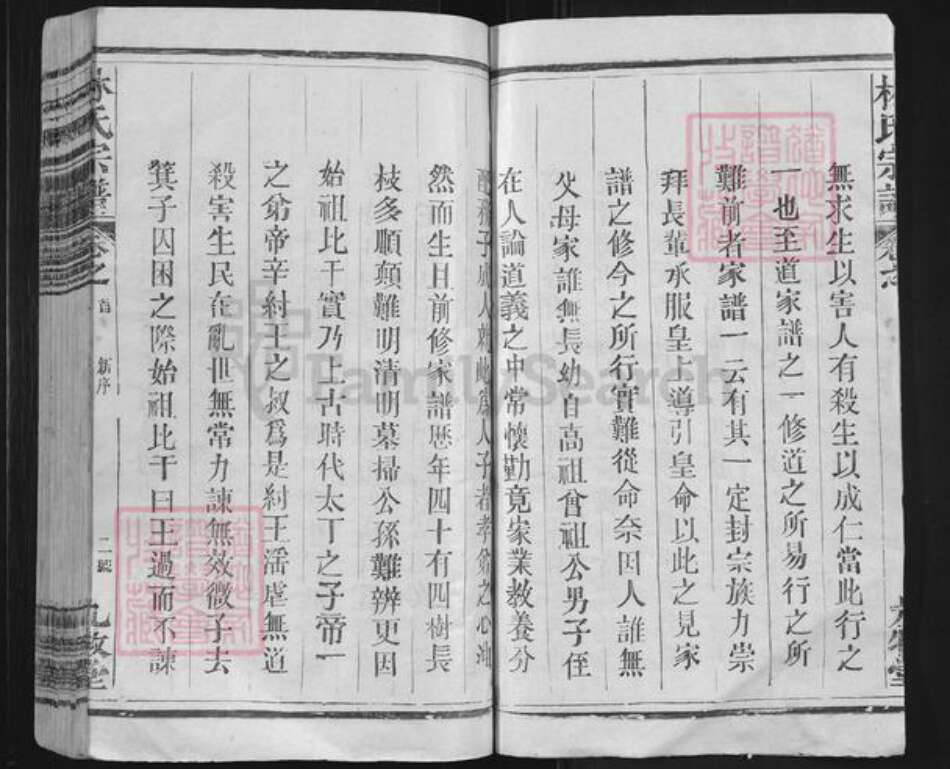 無求生以害人有殺生以成仁當此行之
一也至道家譜之一修道之所易行之所
難前者家譜一云有其一定封宗族力崇
拜長輩承服皇上導引皇命以此之見家
譜之修今之所行實難從命奈因人誰無
父母家誰無長幼自高祖曾祖公男子侄
在人論道義之中常懷勤竟家業教養分
子處人為人子者孝爺之心
然而生且前修家譜歷年四十有四樹長
枝多順顛難明清明墓掃公孫難辨更因
始祖比干實乃上古時代太丁之子帝一
之爺帝辛紂王之叔爲是紂王滛虐無道
殺害生民在亂世無常力諫無效微子去
箕子囚困之際始祖比干曰王過而不諫
林氏宗譜
卷之
首
新序
二
九牧堂
FamilySearch